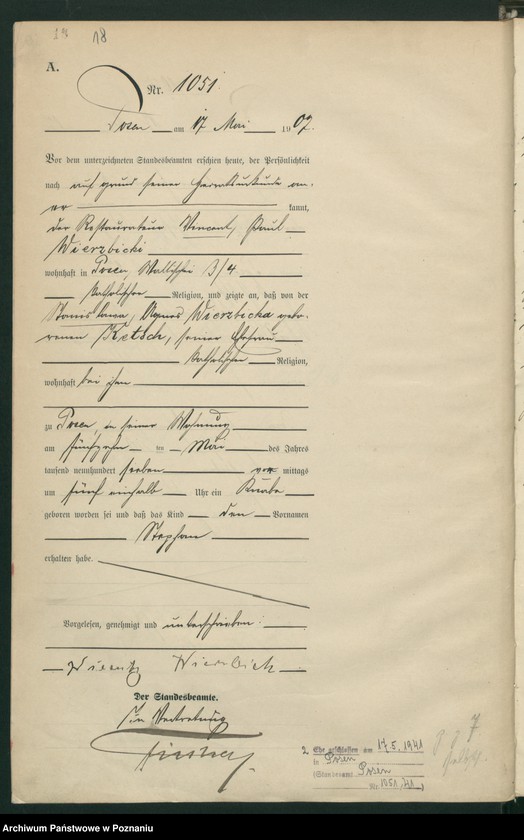 18
A.
Nr. 1051.
Posen am 17 Mai 1907.
Vor dem unterzeichneten Standesbeamten erschien heute, der Persönlichkeit
nach auf grund seiner Heiratsurkunde an-
er kannt,
der Restaurateur Vincent, Paul
Wierzbicki
wohnhaft in Posen, Wallischei 3/4
katholischer Religion, und zeigte an, daß von der
Stanislawa, Agnes Wierzbicka gebo-
renen Ketsch, seiner Ehefrau
katholischer Religion,
wohnhaft bei ihm
zu Posen, in seiner Wohnung
am fünfzehn ten Mai des Jahres
tausend neunhundert sieben vor mittags
um fünf einhalb Uhr ein Knabe
geboren worden sei und daß das Kind den Vornamen
Stephan
erhalten habe.
Vorgelesen, genehmigt und unterschrieben:
Wierzbicki
Der Standesbeamte.
In Vertretung
2. Ehe geschlossen am 17.5.1941
in Posen
(Standesamt Posen
Nr. 1051/41)
Archiwum Państwowe w Poznaniu